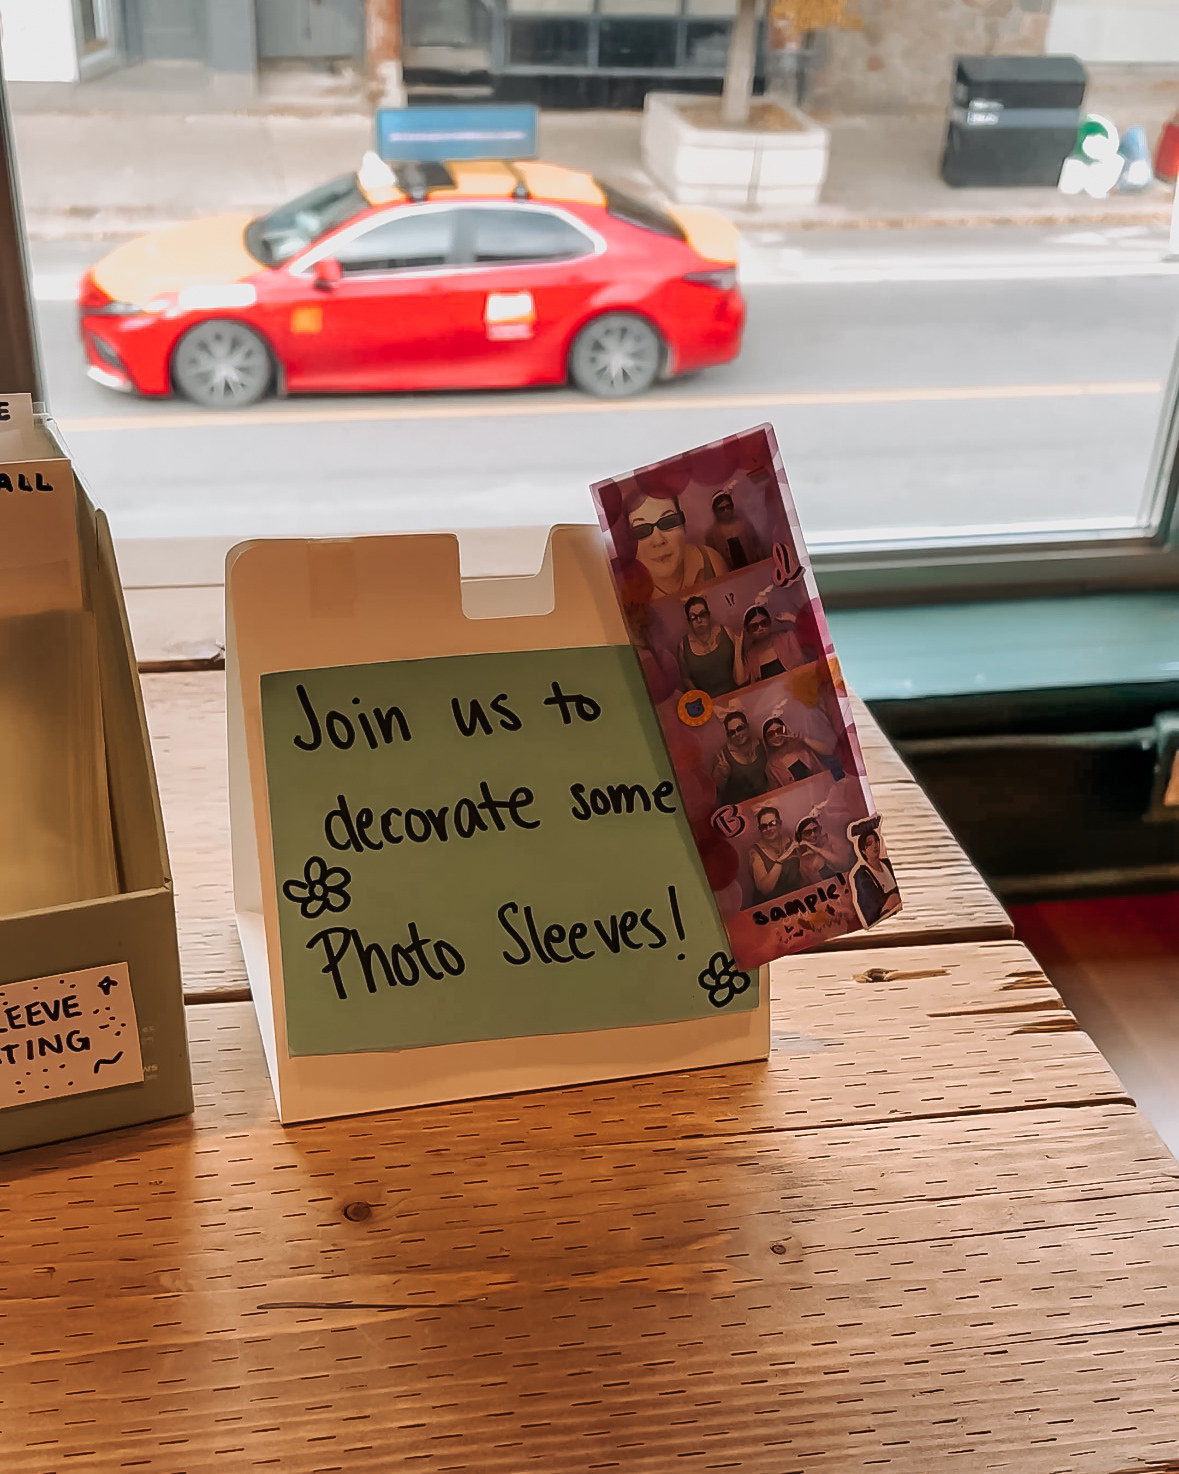 Join us to
decorate some
Photo Sleeves!
sample!
B
E
ALL
LEEVE
TING